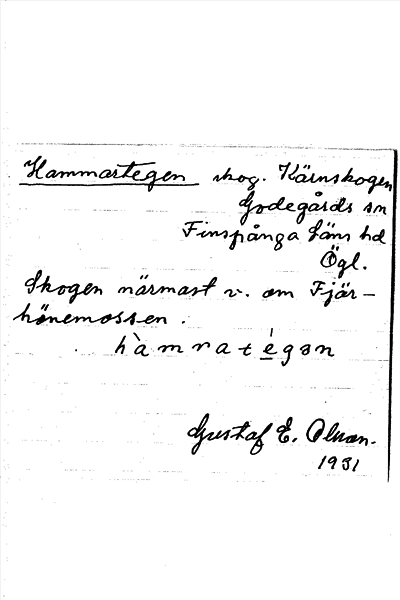 Hammartegen skog. Kärnskogen
Godegårds sn
Finspånga läns hd
Ögl.
Skogen närmast v. om Fjär-
hönemossen.
hàmrat égən
Gustaf E. Olsson.
1931